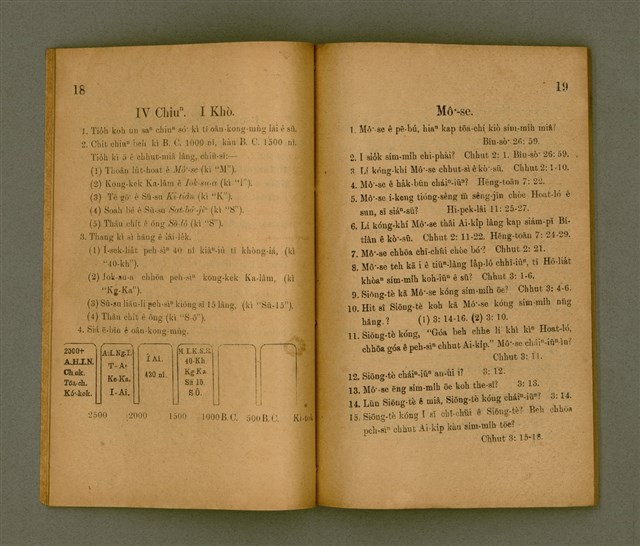 18
IV Chiuⁿ. I Khò.
1. Tio̍h koh un saⁿ chiuⁿ só· kì tī oān-kong-mn̂g lāi ê sū.
2. Chit chiuⁿ beh kì B. C. 1000 nî, kàu B. C. 1500 nî.
Tio̍h kì ê chhut-miâ lâng, chiū-sī:—
(1) Thoân lu̍t-hoat ê Mô·-se (kì "M").
(2) Kong-kek Ka-lâm ê Iok-su-a (kì "I").
(3) Tē gō· ê Sū-su Ki-tiān (kì "K").
(4) Soah bó ê Sū-su Sat-bó-jíⁿ (kì "S").
(5) Thâu chi̍t ê ông Sò-lô (kì "S").
3. Thang kì sì hāng ê lâi-le̍k.
(1) Í-sek-lia̍t peh-sìⁿ 40 nî kiâⁿ-iû tī khòng-iá, (kì
"40-kh").
(2) Iok-su-a chhōa peh-sìⁿ kong-kek Ka-lâm, (kì
"Kg-Ka").
(3) Sū-su liāu-lí peh-sìⁿ kiōng sī 15 lâng, (kì "Sū-15").
(4) Thâu chi̍t ê ông (kì "S-ô").
4. Siá ē-bīn ê oān-kong-mn̂g.
2500+
A.H.I.N.
Ch.ok.
Tōa-ch.
Kó·-kok.
A.L Ng.I.
T- A-
Ke-Ka.
I-Ai.
Ì Ai.
430 nî.
M. I. K. S. S.
40-Kh.
Kg Ka.
Sū 15.
S Ô.
2500 2000 1500 1000 B. C. 500 B. C. Ki-tok
19
Mô·-se.
1. Mô·-se ê pē-bú, hiaⁿ kap tōa-chí kiò sím-mi̍h miâ?
Bîn-sò· 26: 59.
2. I sio̍k sím-mi̍h chi-phài? Chhut 2: 1. Bîn-sò· 26: 59.
3 Lí kóng-khí Mô·-se chhut-sì ê kò·-sū. Chhut 2: 1-10.
4. Mô·-se ê ha̍k-būn cháiⁿ-iūⁿ? Hēng-toān 7: 22.
5. Mô·-se í-keng tióng-sêng m̄ sêng-jīn chòe Hoat-ló ê
sun, sī siáⁿ-sū? Hi-pek-lâi 11: 25-27.
6. Lí kóng-khí Mô·-se thâi Ai-ki̍p lâng kap siám-pī Bí-
tiân ê kò·-sū. Chhut 2: 11-22. Hêng-toān 7: 24-29.
7. Mô·-se chhōa chī-chūi chòe bó·? Chhut 2: 21.
8. Mô·-se teh kā i ê tiūⁿ-lâng la̍p-lo̍ chhī-iûⁿ, tī Hô-lia̍t
khòaⁿ sím-mi̍h koh-iūⁿ ê sū? Chhut 3: 1-6.
9. Siōng-tè kā Mô·-se kóng sím-mi̍h ōe? Chhut 3: 4-6.
10. Hit sî Siōng-tè koh kā Mô·-se kóng sím-mi̍h nn̄g
hāng? (1) 3: 14-16. (2) 3: 10.
11. Siōng-tè kóng, "Góa beh chhe lí khì kìⁿ Hoat-ló,
chhōa góa ê peh-sìⁿ chhut Ai-ki̍p." Mô·-se cháiⁿ-iūⁿ ìn?
Chhut 3: 11.
12. Siōng-tè cháiⁿ-iūⁿ an-ùi i? 3: 12.
13. Mô·-se ēng sím-mi̍h ōe koh the-sî? 3: 13.
14. Lūn Siōng-tè ê miâ, Siōng-tè kóng cháiⁿ-iūⁿ? 3: 14.
15. Siōng-tè kóng I sī chī-chūi ê Siōng-tè? Beh chhōa
peh-sìⁿ chhut Ai-ki̍p kàu sím-mi̍h tōe?
Chhut 3: 15-18.